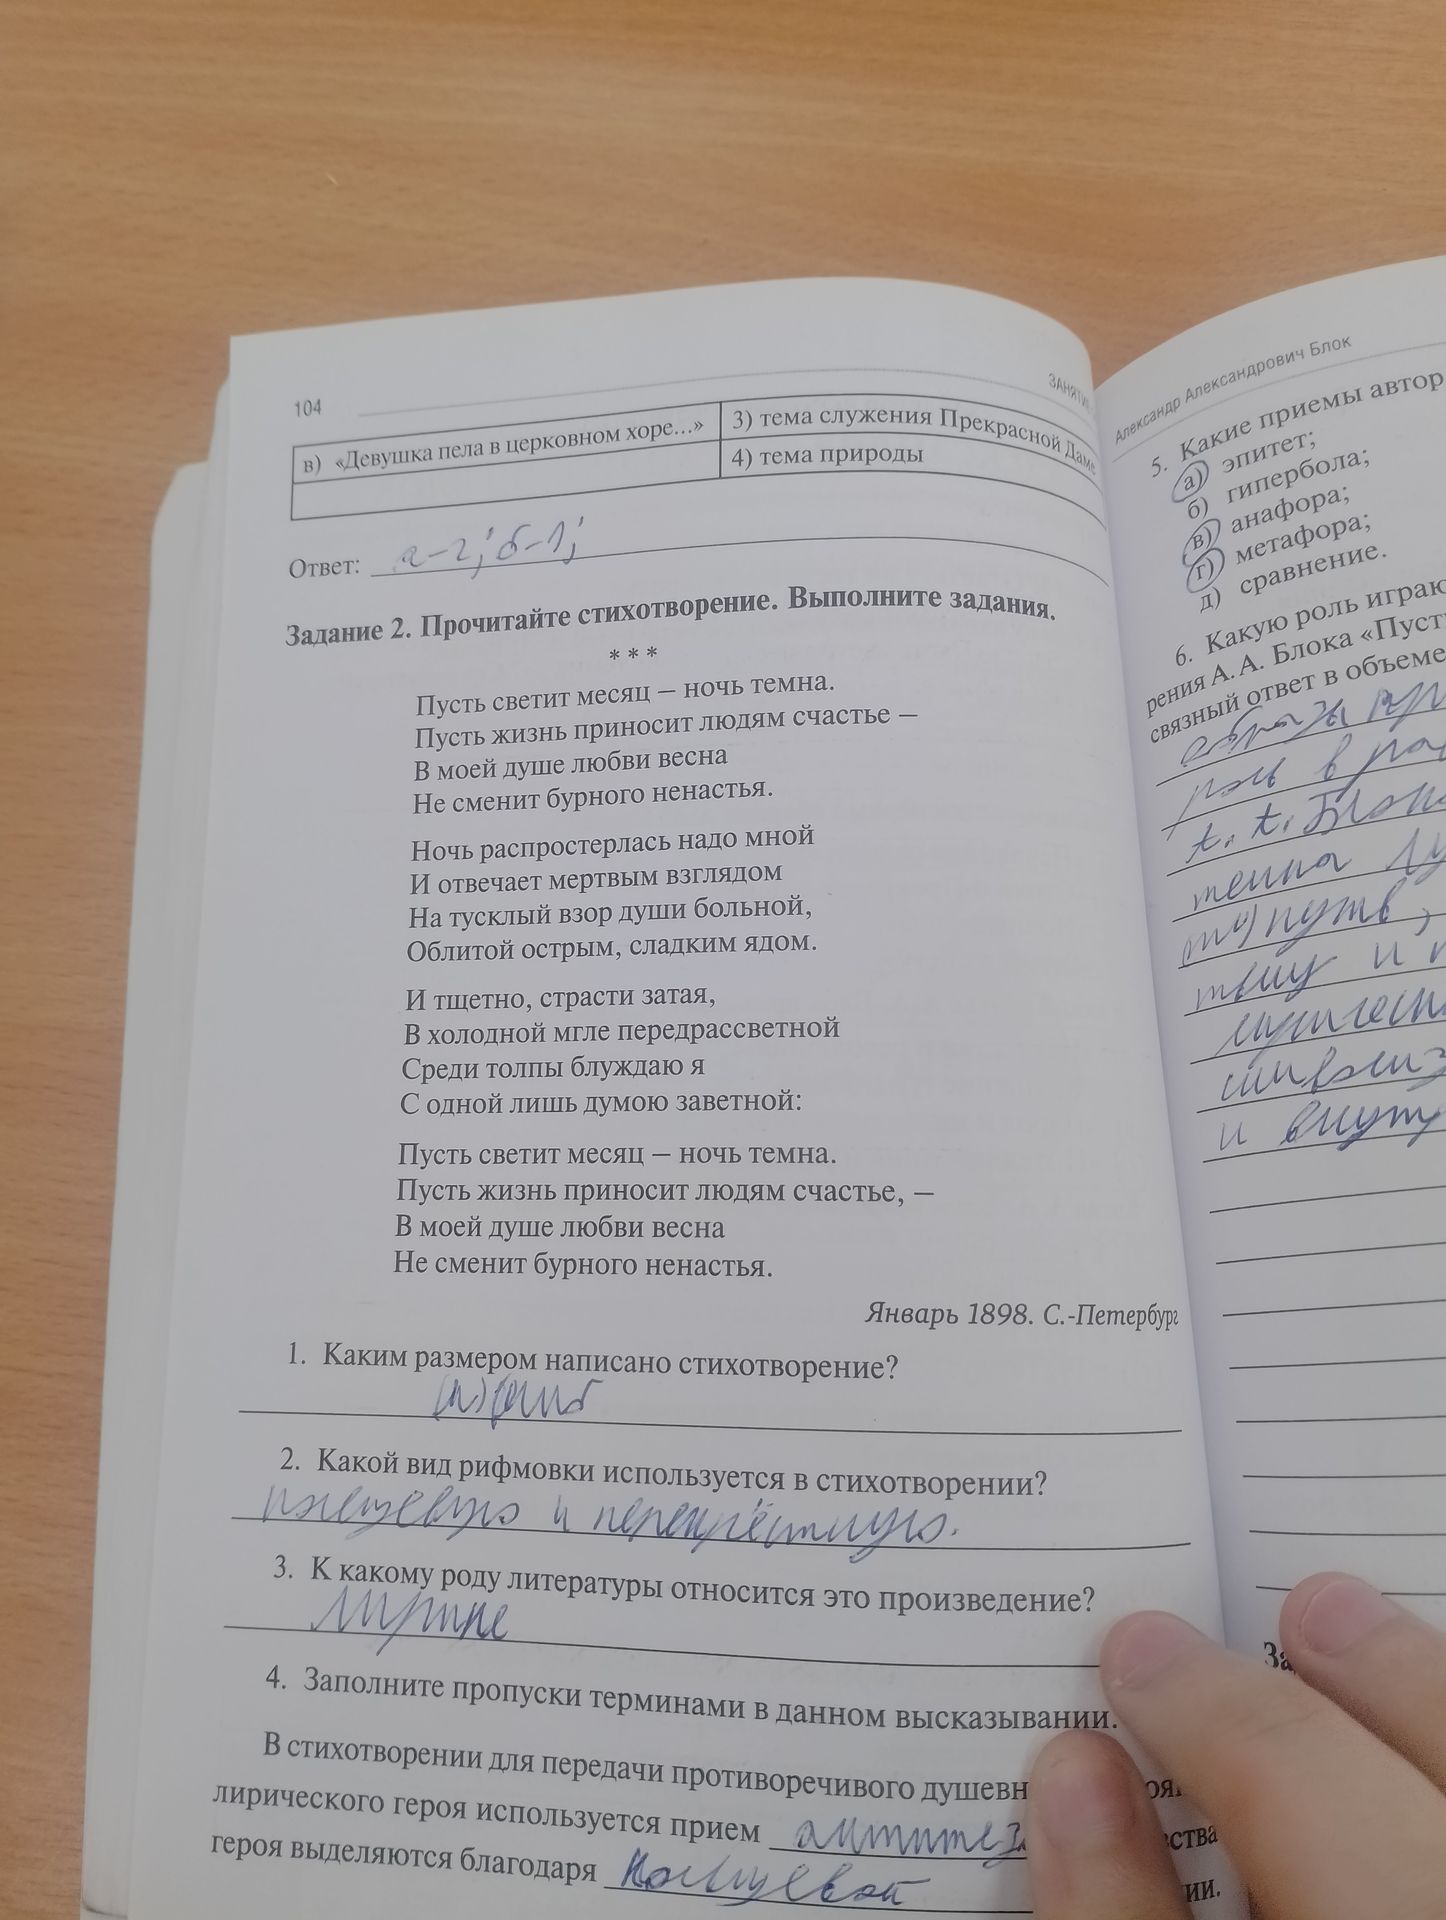 104
ЗАНЯТИЕ
в) «Девушка пела в церковном хоре...»
3) тема служения Прекрасной Даме
4) тема природы
Ответ: а-2; б-1;
Задание 2. Прочитайте стихотворение. Выполните задания.
* * *
Пусть светит месяц — ночь темна.
Пусть жизнь приносит людям счастье —
В моей душе любви весна
Не сменит бурного ненастья.
Ночь распростерлась надо мной
И отвечает мертвым взглядом
На тусклый взор души больной,
Облитой острым, сладким ядом.
И тщетно, страсти затая,
В холодной мгле передрассветной
Среди толпы блуждаю я
С одной лишь думою заветной:
Пусть светит месяц — ночь темна.
Пусть жизнь приносит людям счастье, —
В моей душе любви весна
Не сменит бурного ненастья.
Январь 1898. С.-Петербург
1. Каким размером написано стихотворение?
2. Какой вид рифмовки используется в стихотворении?
и перекрёстную.
3. К какому роду литературы относится это произведение?
Лирике
4. Заполните пропуски терминами в данном высказывании.
В стихотворении для передачи противоречивого душевн
лирического героя используется прием антитеза ства
героя выделяются благодаря кольцевой ии.
Александр Александрович Блок
5. Какие приемы автор
а) эпитет;
б) гипербола;
в) анафора;
г) метафора;
д) сравнение.
6. Какую роль играю
рения А. А. Блока «Пусть
связный ответ в объеме
образы
роль в
А. А. Блока
путь,
и
и внутр
За